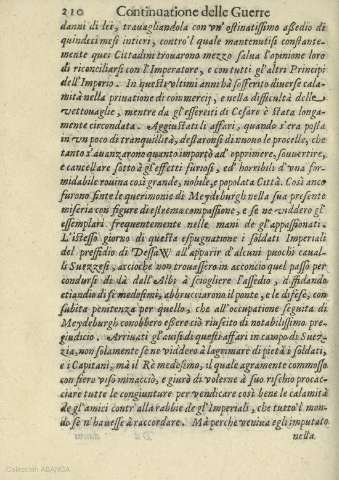 210 Continuatione delle Guerre
danni di lei, trauagliandola con vn'ostinatissimo assedio di
quindeci mesi intieri, contro'l quale mantenutisi constante-
mente quei Cittadini trouarono mezzo salua l'opinione loro
di riconciliarsi con l'Imperatore, e con tutti gl'altri Principi
dell'Imperio. In questi vltimi anni hà sofferito diuerse cala-
mità nella priuatione di commercij, e nella difficultà delle
vettouaglie, mentre da gl'esserciti di Cesare è stata longa-
mente circondata. Aggiustati li affari, quando s'era posta
in vn poco di tranquillità, destaronsi di nuouo le procelle, che
tanto s'auanzarono quanto importò ad opprimere, souuertire,
e cancellare sotto à gl'effetti furiosi, ed horribili d'vna for-
midabile rouina così grande, nobile, e popolata Città. Così anco
furono finte le querimonie di Meydeburgh nella sua presente
miseria con figure di estrema compassione, e se ne viddero gl'
essemplari frequentemente nelle mani de gl'appassionati.
L'istesso giorno di questa espugnatione i soldati Imperiali
del pressidio di Dessaw all'apparir d'alcuni puochi caual-
li Suezzesi, accioche non trouassero in acconcio quel passo per
condursi di là dall'Albi à sciogliere l'assedio, diffidando
etiandio di se medesimi, abbrucciarono il ponte, e le difese, con
subita penitenza per quello, che all'occupatione seguita di
Meydeburgh conobbero essere ciò riuscito di notabilissimo pre-
giudicio. Arriuati gl'auisi di questi affari in campo di Suez-
zia, non solamente se ne viddero à lagrimare di pietà i soldati,
e i Capitani, mà il Rè medesimo, il quale agramente commosso
con fiero viso minacciò, e giurò di volerne à suo rischio procac-
ciare tutte le congiunture per vendicare così bene le calamità
de gl'amici contr'alla rabbie de gl'Imperiali, che tutto'l mon-
do se n'hauesse à raccordare. Mà perche veniua egli imputato
nella.
Colección ABANCA